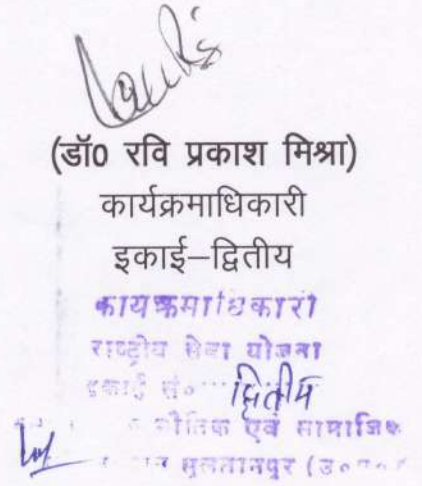 (डॉ0 रवि प्रकाश मिश्रा)
कार्यक्रमाधिकारी
इकाई–द्वितीय
कार्यक्रमाधिकारी
राष्ट्रीय सेवा योजना
इकाई सं० द्वितीय
भौतिक एवं सामाजिक
सुलतानपुर (उ०प्र०